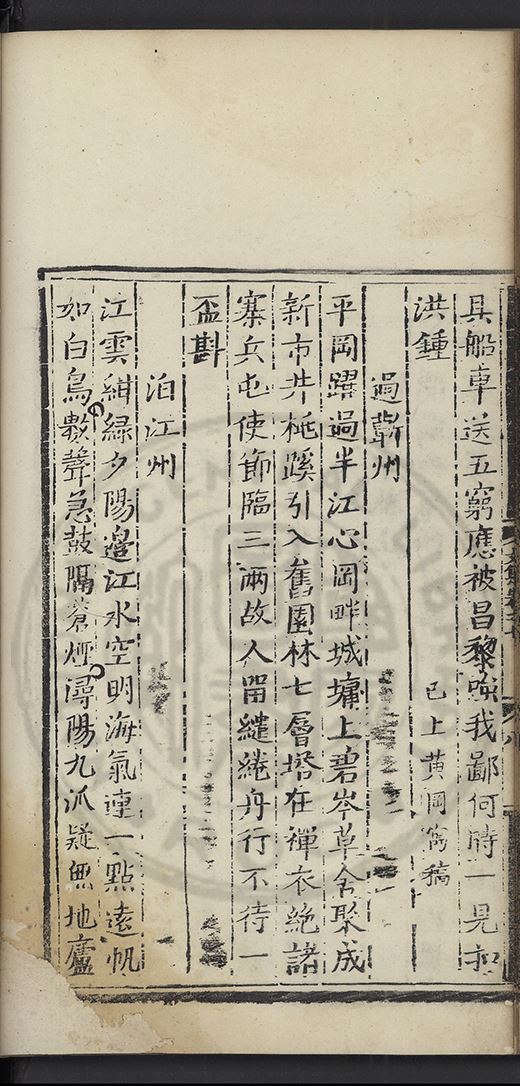 具船車送五窮應被昌黎強我鄙何時一見如
洪鍾　已上黄岡寓稿
過蘄州
平岡躍過半江心岡畔城墉上碧岑草舍聚成
新市井桃蹊引入舊園林七層塔在禪衣絶諸
寨兵屯使節臨三兩故人留繾綣舟行不待一
盃斟
泊江州
江雲紺緑夕陽邉江水空明海氣連一點遠帆
如白鳥數聲急鼓隔蒼煙潯陽九派疑無地廬